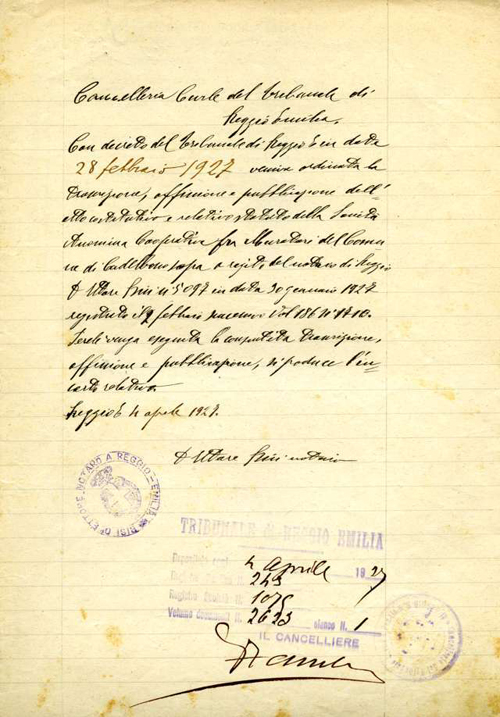 Cancelleria Civile del Tribunale di
Reggio Emilia,
Con decreto del Tribunale di Reggio E in data
28 febbraio 1927 veniva ordinata la
trascrizione, affissione e pubblicazione dell'
atto costitutivo e relativo statuto della Società
Anonima Cooperativa fra Muratori del Comu
ne di Cadelbosco sopra a rogito del notaro di Reggio
D Ettore Sisi n 5097 in data 30 gennaio 1927
registrato il 9 febbraio successivo Vol 186 N 1710.
venga eseguita la trascrizione,
affissione e pubblicazione, si produce l'in
carto relativo.
Reggio E 4 aprile 1927.
D Ettore Sisi notaio
SISI D. ETTORE, NOTARO A REGGIO-EMILIA
TRIBUNALE di REGGIO EMILIA
Depositato oggi 4 Aprile 1927
Registro N. 243
Registro Società N. 1075
Volume documenti N. 2623 elenco N. 1
IL CANCELLIERE